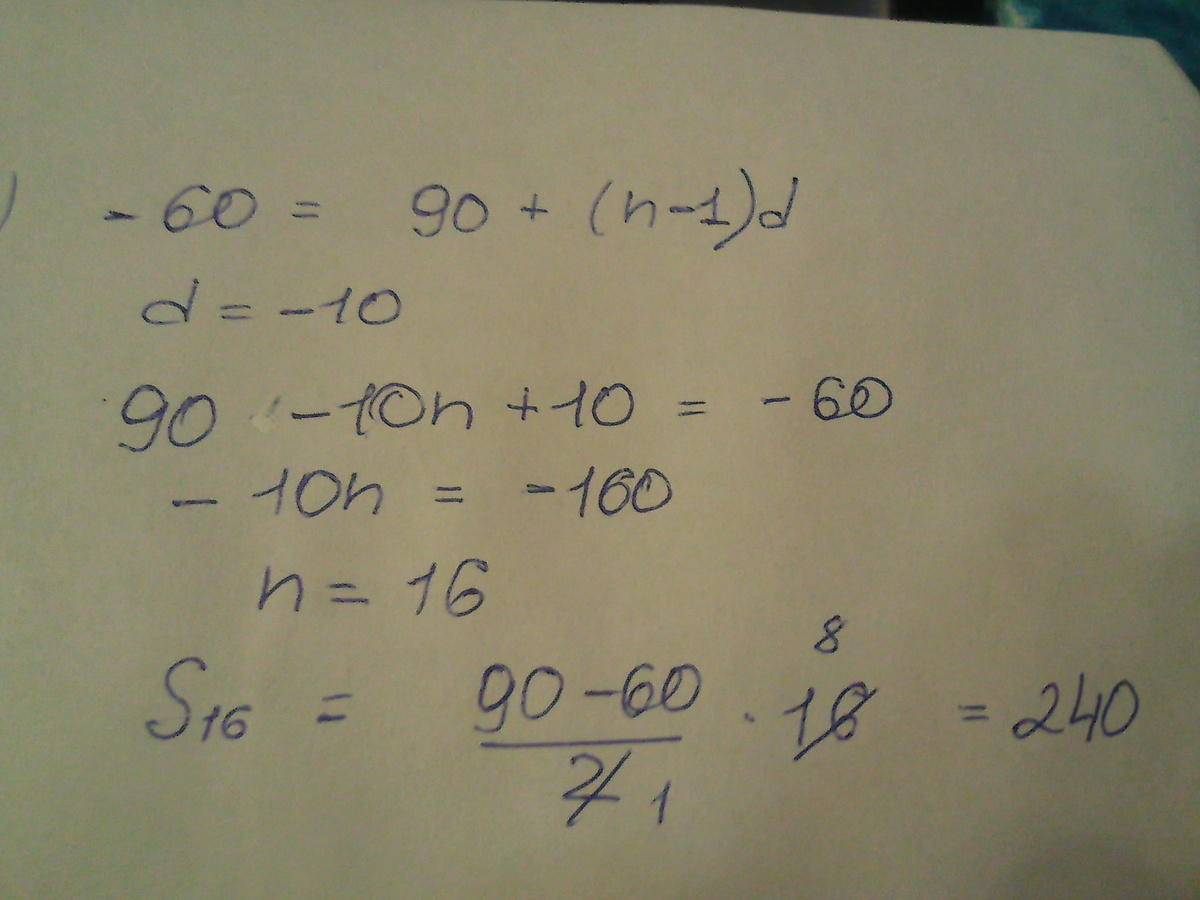 ) -60 = 90 + (n-1)d
d = -10
90 -10n +10 = -60
-10n = -160
n = 16
8
S₁₆ = (90-60)/2 · 16 = 240
1